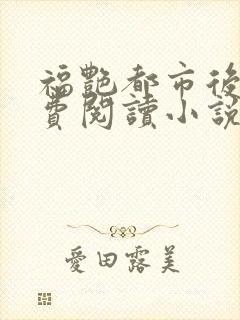 福艷都市後
費閱讀小說
愛田露美